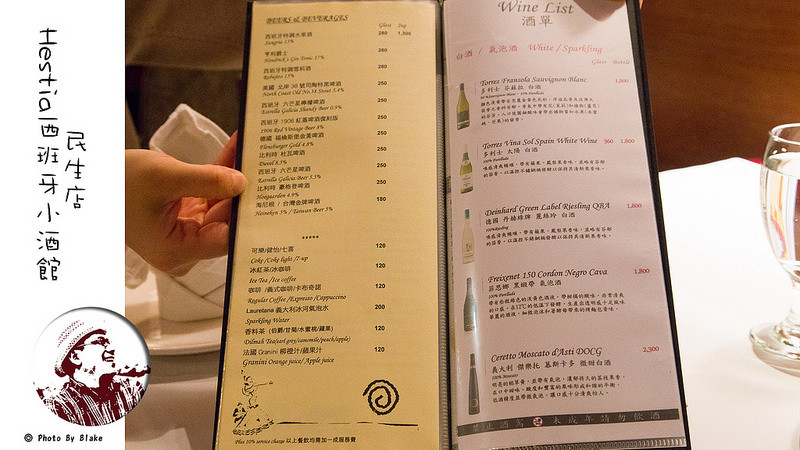 testio西班牙小酒館
民生店
© Photo By Blake
BEERS & BEVERAGES
Glass Jug
西班牙特調水果酒 280 1,300
Sangria 13%
亨利爵士 280
Hendrick's Gin Tonic 17%
西班牙特調雪莉酒 280
Rebujito 15%
美國 北岸 38 號司陶特黑啤酒 250
North Coast Old No.38 Stout 5.4%
西班牙 六芒星檸檬啤酒 250
Estrella Galicia Shandy Beer 0.9%
西班牙 1906 紅蓋啤酒復刻版 250
1906 Red Vintage Beer 8%
德國 福倫斯堡金黃啤酒 250
Flensburger Gold 4.8%
比利時 杜瓦啤酒 250
Duvel 8.5%
西班牙 六芒星啤酒 250
Estrella Galicia Beer 5.5%
比利時 豪格登啤酒 250
Hoegaarden 4.9%
海尼根 / 台灣金牌啤酒 180
Heineken 5% / Taiwan Beer 5%
*****
可樂/健怡/七喜 120
Coke /Coke light /7-up
冰紅茶/冰咖啡 120
Ice Tea /Ice coffee
咖啡 /義式咖啡/卡布奇諾 120
Regular Coffee /Espresso /Cappuccino
Lauretana 義大利冰河氣泡水 200
Sparkling Water
香料茶 (伯爵/甘菊/水蜜桃/蘋果) 120
Dilmah Tea(earl grey/camomile/peach/apple)
法國 Granini 柳橙汁/蘋果汁 120
Granini Orange juice/ Apple juice
Plus 10% service charge 以上餐飲均需加一成服務費
Wine List
酒單
白酒 / 氣泡酒 White / Sparkling
Glass Bottle
Torres Fransola Sauvignon Blanc 1,800
多利士 芬蘇拉 白酒
Torres Vina Sol Spain White Wine 360 1,800
多利士 太陽 白酒
100% Parellada
Deinhard Green Label Riesling QBA 1,800
德國 丹赫綠牌 麗絲玲 白酒
100% Riesling
Freixenet 150 Cordon Negro Cava 1,800
菲思娜 黑緞帶 氣泡酒
100% Parellada
Ceretto Moscato d'Asti DOCG 2,300
義大利 傑樂托 慕斯卡多 微甜白酒
100% Moscato
禁止酒駕 未成年請勿飲酒